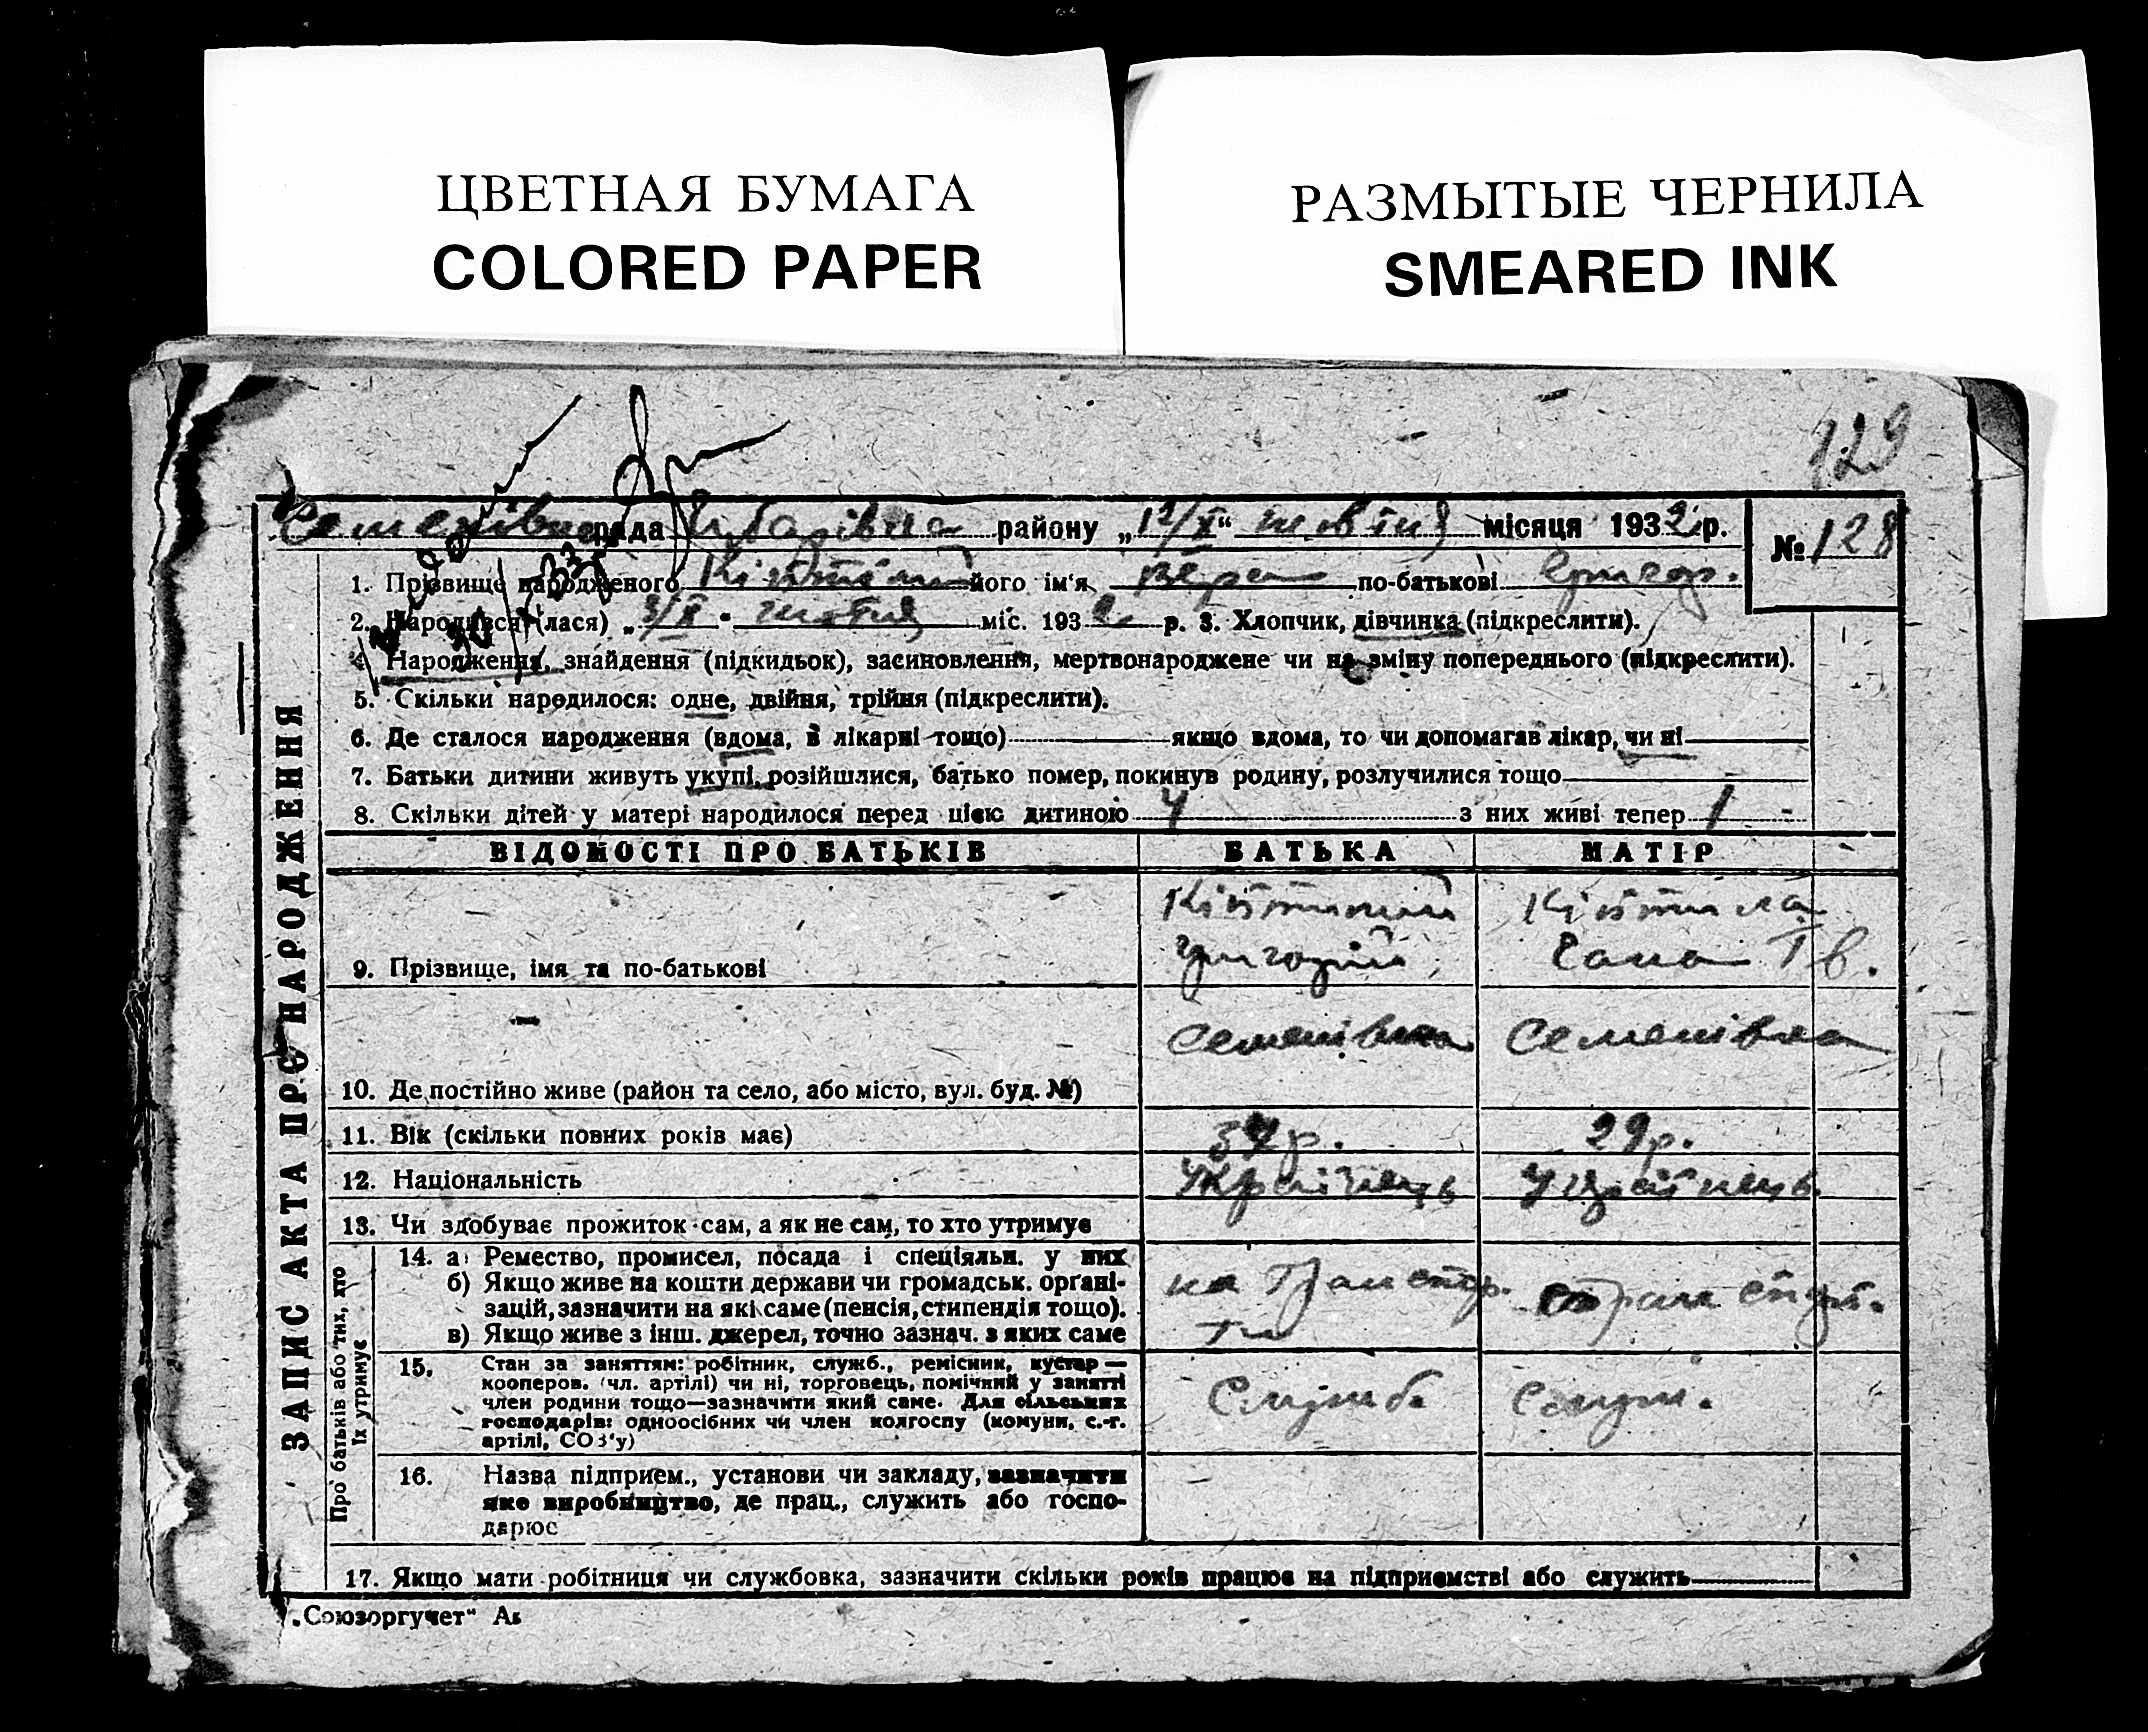 ЦВЕТНАЯ БУМАГА
COLORED PAPER
РАЗМЫТЫЕ ЧЕРНИЛА
SMEARED INK
129
рада району „12/X“ жовтня місяця 1932 р.
№ 128
1. Прізвище народженого його ім'я Вера по-батькові Григор.
2. Народився (лася) „ /X “ жовтня міс. 1932 р. 3. Хлопчик, дівчинка (підкреслити).
4. Народження, знайдення (підкидьок), засиновлення, мертвонароджене чи на зміну попереднього (підкреслити).
5. Скільки народилося: одне, двійня, трійня (підкреслити).
6. Де сталося народження (вдома, в лікарні тощо) якщо вдома, то чи допомагав лікар, чи ні
7. Батьки дитини живуть укупі, розійшлися, батько помер, покинув родину, розлучилися тощо
8. Скільки дітей у матері народилося перед цією дитиною 4 з них живі тепер 1
ВІДОМОСТІ ПРО БАТЬКІВ БАТЬКА МАТІР
9. Прізвище, імя та по-батькові Григорій
Семенівка Семенівка
10. Де постійно живе (район та село, або місто, вул. буд. №)
11. Вік (скільки повних років має) р. 29 р.
12. Національність Українець Українець
13. Чи здобуває прожиток сам, а як не сам, то хто утримує
ЗАПИС АКТА ПРО НАРОДЖЕННЯ
Про батьків або тих, хто
їх утримує
14. а) Ремество, промисел, посада і спеціяльн. у них
б) Якщо живе на кошти держави чи громадськ. орґані-
зацій, зазначити на які саме (пенсія, стипендія тощо).
в) Якщо живе з інш. джерел, точно зазнач. з яких саме
15. Стан за заняттям: робітник, служб., ремісник, кустар —
кооперов. (чл. артілі) чи ні, торговець, помічний у занятті
член родини тощо—зазначити який саме. Для сільських
господарів: одноосібних чи член колгоспу (комуни, с.-г.
артілі, СОЗ'у)
Служб. Служ.
16. Назва підприєм., установи чи закладу, зазначити
яке виробництво, де прац., служить або госпо-
дарює
17. Якщо мати робітниця чи службовка, зазначити скільки років працює на підприємстві або служить
„Союзоргучет“